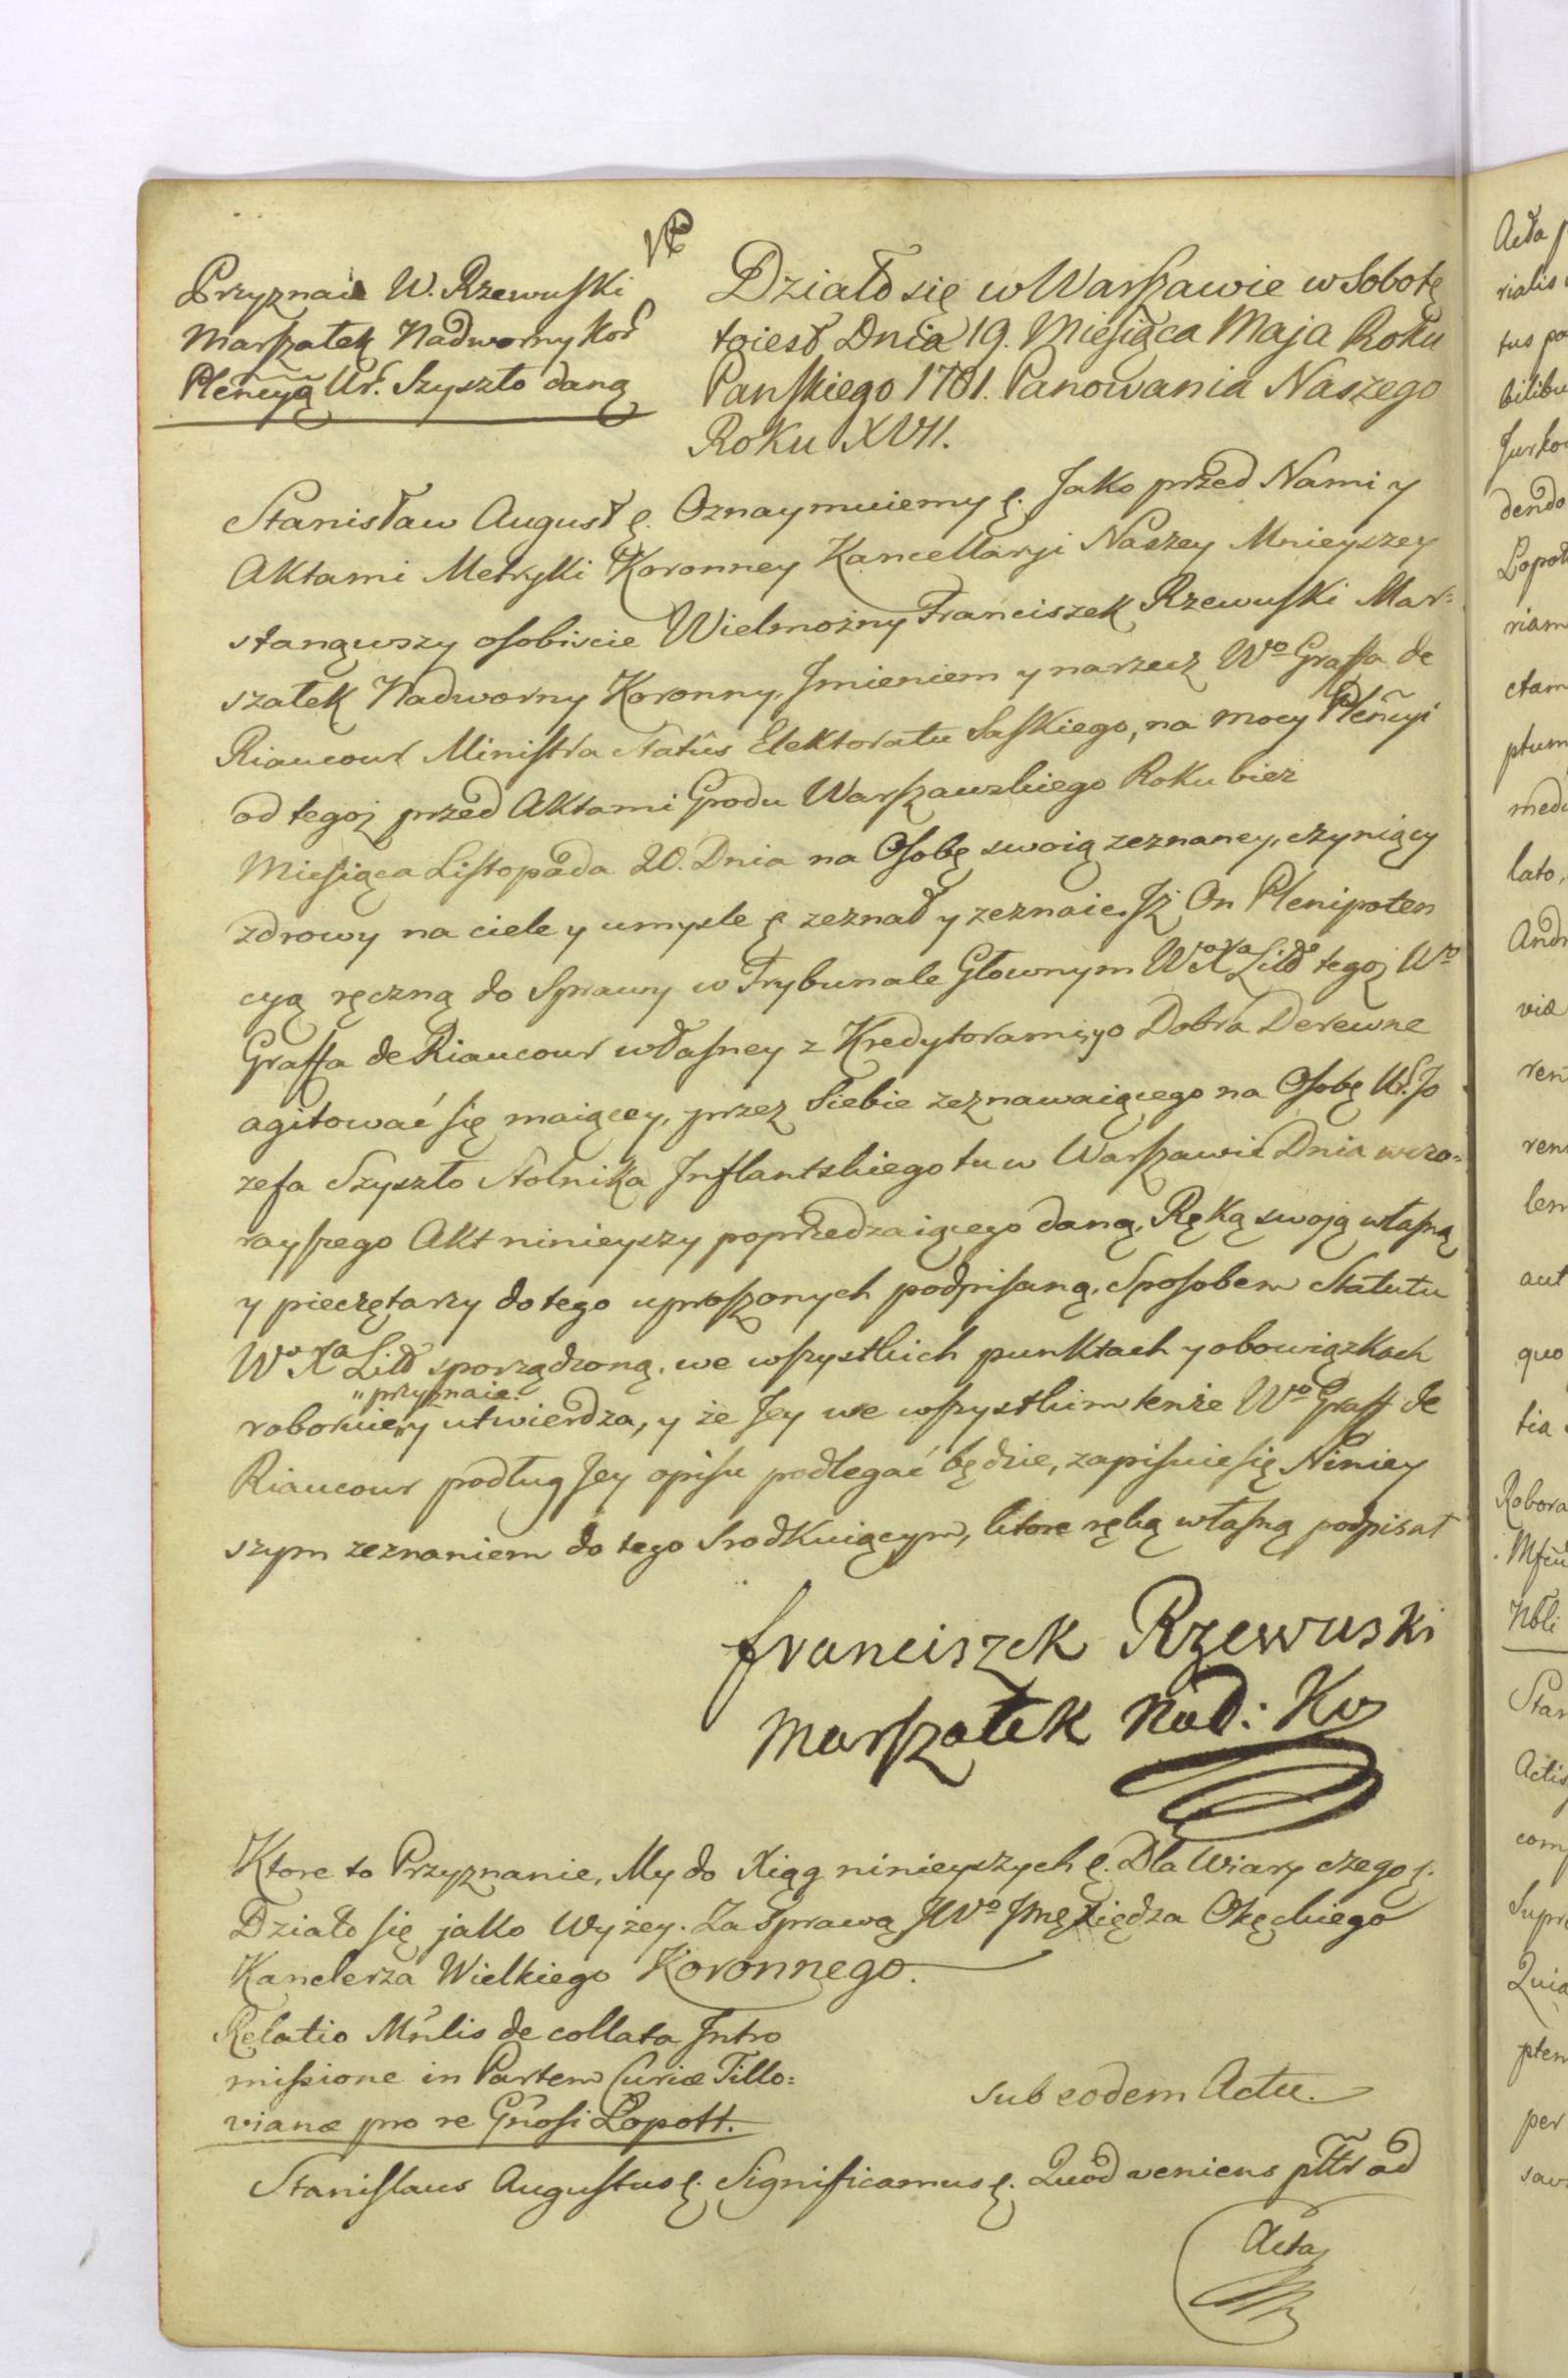 Przyznaie W. Rzewuski
Marszałek Nadworny Kor
Pleńcyą Ur. Szyszło daną
Działo się w Warszawie w Sobotę
toiest Dnia 19. Miesiąca Maja Roku
Panskiego 1781. Panowania Naszego
Roku XVII.
Stanisław August ę. Oznaymuiemy ę. Jako przed Nami y
Aktami Metryki Koronney Kancellaryi Naszey Mnieyszey
stanąwszy osobiscie Wielmożny Franciszek Rzewuski Mar=
szałek Nadworny Koronny, Jmieniem y narzecz Wo Graffa de
Riaucour Ministra Statûs Elektoratu Saskiego, na mocy Pleńcyi
od tegoż przed Aktami Grodu Warszawskiego Roku bież
Miesiąca Listopada 20. Dnia na Osobę swoią zeznaney, czyniący
zdrowy na ciele y umysle ę zeznał y zeznaie, Jż On Plenipoten
cyą ręczną do Sprawy w Trybunale Głownym Wo Xa Litto tegoż Wo
Graffa de Riaucour własney z Kredytorami, yo Dobra Derewne
agitować się maiącey, przez Siebie zeznawaiącego na Osobę Ur. Jo
zefa Szyszło Stolnika Jnflantskiego tu w Warszawie Dnia wczo=
rayszego Akt ninieyszy poprzedzaiącego daną, Ręką swoją własną
y pieczętarzy do tego uproszonych podpisaną, Sposobem Statutu
Wo Xa Litt sporządzoną, we wszystkich punktach y obowiązkach
"przyznaie.
roboruie, y utwierdza, y że Jey we wszystkim tenże Wo Graff de
Riaucour podług Jey opisu podlegać będzie, zapisuie się Niniey
szym zeznaniem do tego srodkuiącym, ktore ręką własną podpisał
Franciszek Rzewuski
Marszałek Nad: Ko
Ktore to Przyznanie, My do Xiąg ninieyszych ę. Dla Wiary czego ę.
Działo się jako Wyżey. Za Sprawą JWo Jmę Xiędza Okęckiego
Kanclerza Wielkiego Koronnego.
Relatio Mnlis de collata Jntro
missione in Partem Curiæ Tillo=
vianæ pro re Gnosi Łopott.
Sub eodem Actu.
Stanislaus Augustus ę. Significamus ę. Quod veniens pttr ad
Acta